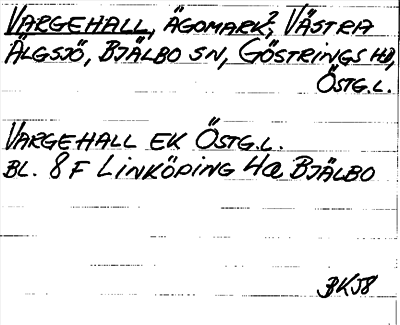 VARGEHALL, ÄGOMARK?, VÄSTRA
ÄLGSJÖ, BJÄLBO SN, GÖSTRINGS HD,
ÖSTG.L.
VARGEHALL EK ÖSTG.L.
BL. 8 F LINKÖPING 4a BJÄLBO
BKJ8